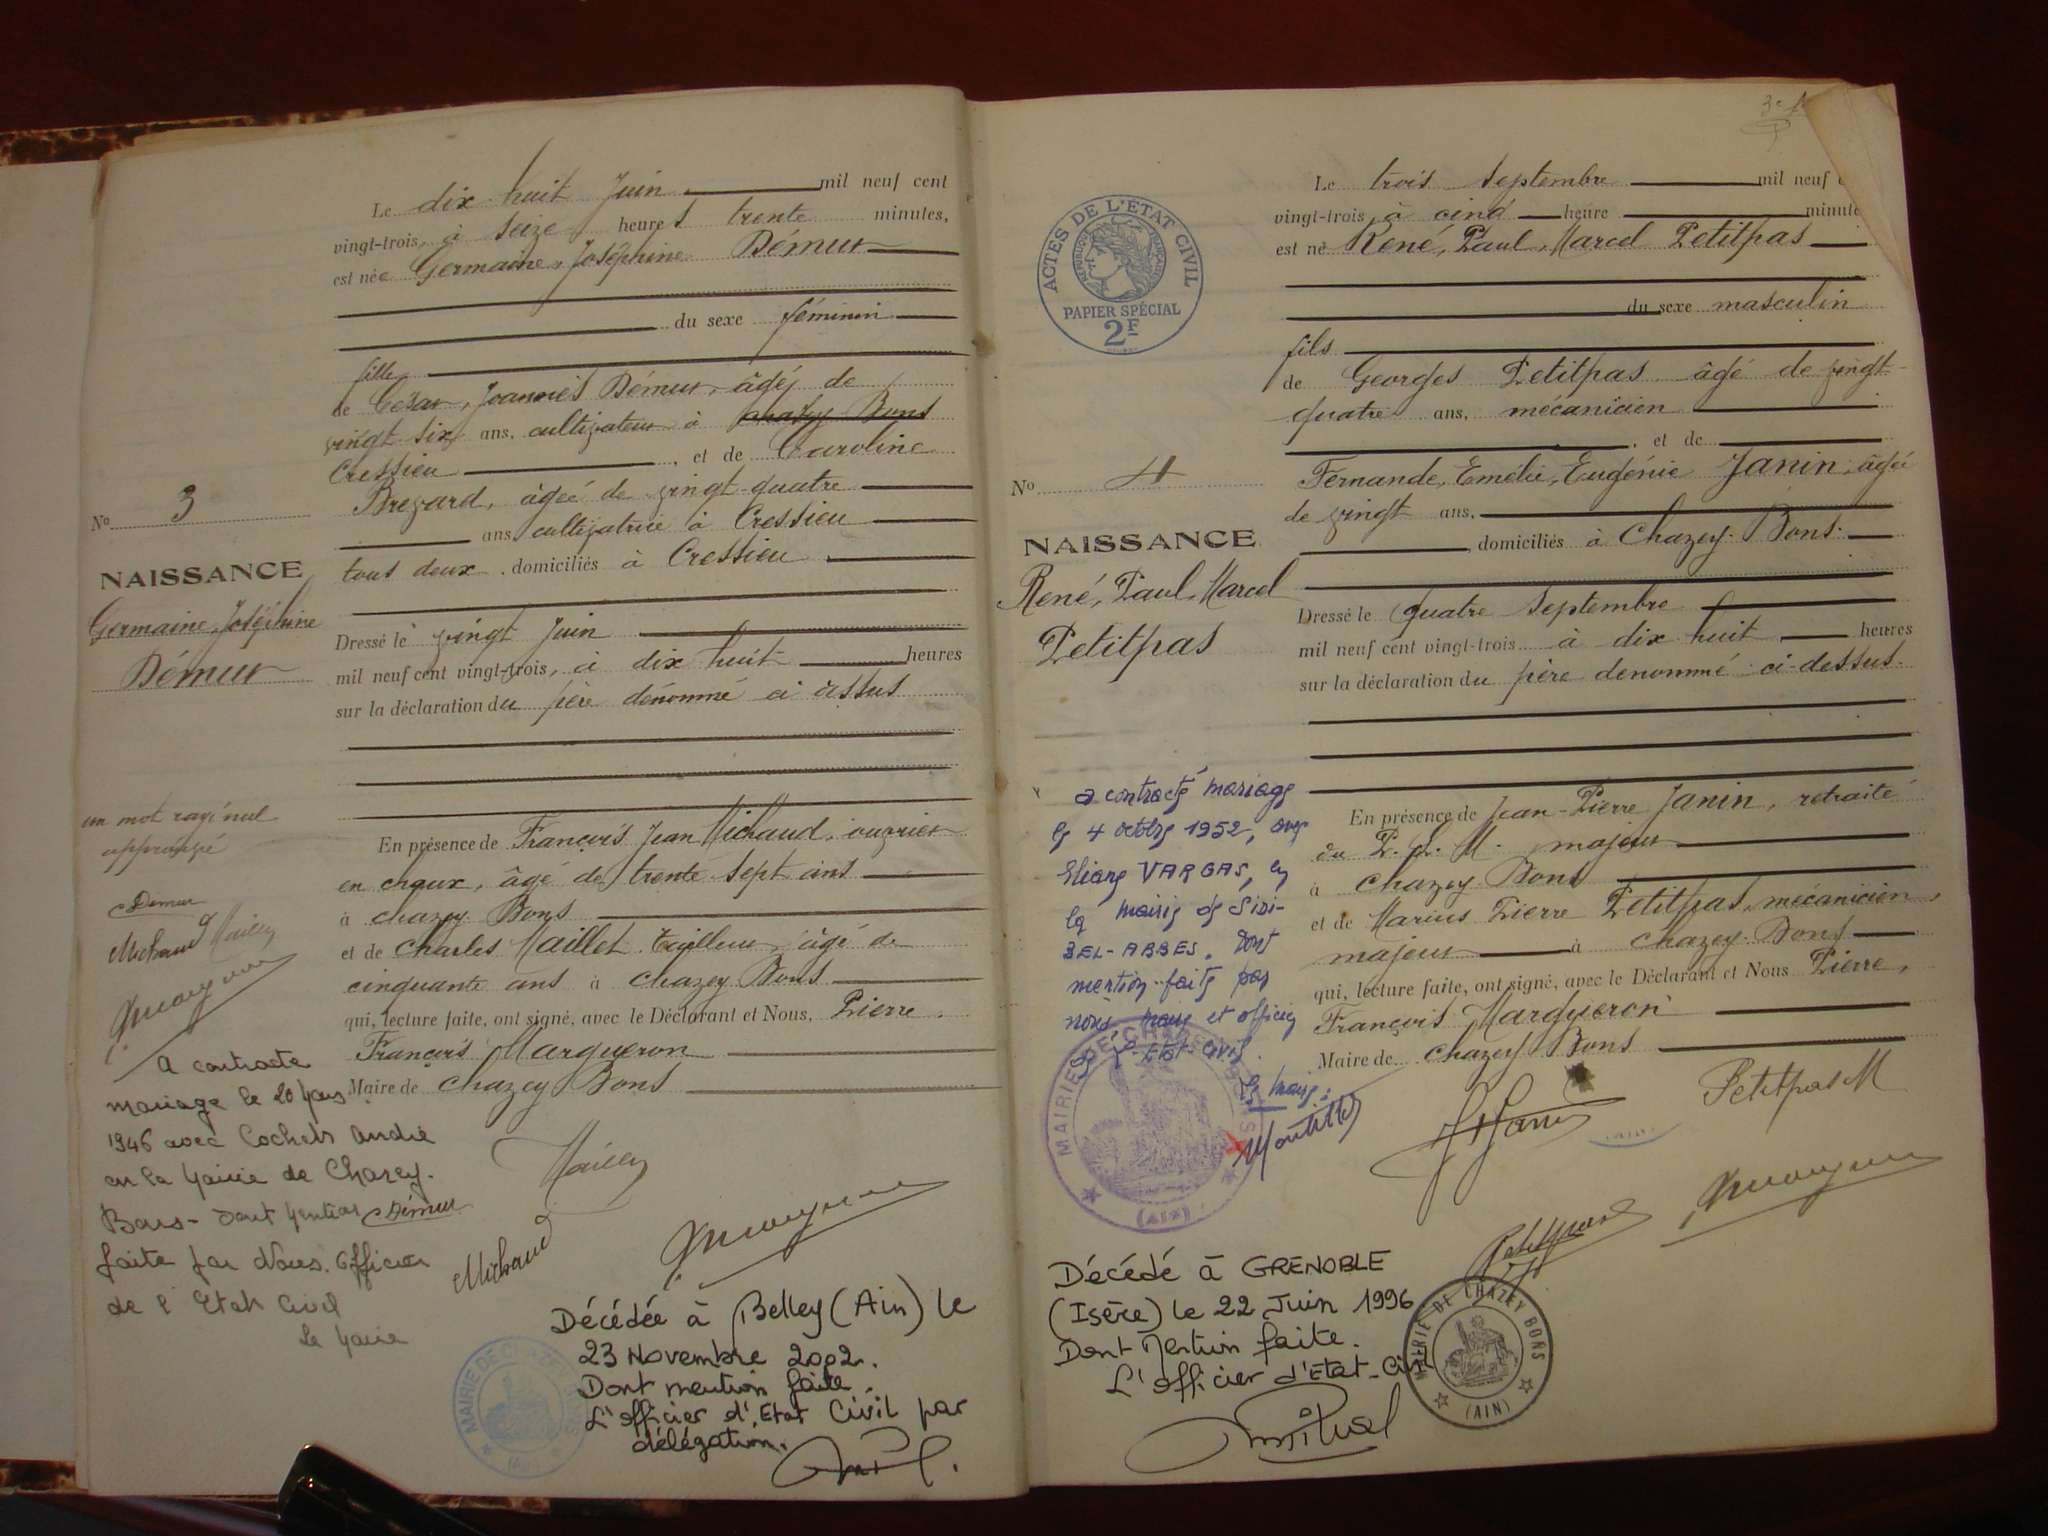 Le dix huit Juin mil neuf cent
vingt-trois, à seize heures trente minutes,
est née Germaine, Joséphine Démur
du sexe féminin
fille
de César, Joannès Démur, âgé de
vingt six ans, cultivateur à chazey Bons
Cressieu, et de Caroline
Brezard, âgée de vingt-quatre
ans cultivatrice à Cressieu
tous deux, domiciliés à Cressieu
Dressé le vingt Juin
mil neuf cent vingt-trois, à dix huit heures
sur la déclaration du père dénommé ci dessus
En présence de François Jean Michaud, ouvrier
en chaux, âgé de trente sept ans
à chazey Bons
et de Charles Maillet tailleur, âgé de
cinquante ans à chazey Bons
qui, lecture faite, ont signé, avec le Déclarant et Nous, Pierre,
François Margueron
Maire de chazey Bons
No 3
NAISSANCE
Germaine, Joséphine
Démur
un mot rayé nul
approuvé
Démur
Michaud
A contracté
mariage le 20 Mars
1946 avec Cochet André
en la Mairie de Chazey-
Bons - Dont Mention
faite par Nous, Officier
de l'Etat Civil
Le Maire
Démur
Michaud
Décédée à Belley (Ain) le
23 Novembre 2002.
Dont mention faite.
L'officier d'Etat Civil par
délégation.
3e
ACTES DE L'ÉTAT CIVIL
RÉPUBLIQUE FRANÇAISE
PAPIER SPÉCIAL
2F
Le trois septembre mil neuf
vingt-trois à cinq heure minute
est né René, Paul, Marcel Petitpas
du sexe masculin
fils
de Georges Petitpas âgé de vingt-
quatre ans, mécanicien
, et de
Fernande, Emélie, Eugénie Janin, âgée
de vingt ans,
, domiciliés à Chazey-Bons
Dressé le quatre Septembre
mil neuf cent vingt-trois à dix huit heures
sur la déclaration du père dénommé ci-dessus
En présence de Jean-Pierre Janin, retraité
du P. L. M. majeur
à Chazey-Bons
et de Marius Pierre Petitpas, mécanicien,
majeur à Chazey-Bons
qui, lecture faite, ont signé, avec le Déclarant et Nous Pierre,
François Margueron
Maire de chazey Bons
No 4
NAISSANCE
René, Paul, Marcel
Petitpas
a contracté mariage
le 4 octobre 1952, avec
Eliane VARGAS, en
la mairie de Sidi-
BEL-ABBES. Dont
mention faite par
nous, maire et officier
de l'Etat-civil.
Le maire:
MAIRIE DE CHAZEY BONS
(AIN)
Petitpas M
Petitpas
Décédé à GRENOBLE
(Isère) le 22 Juin 1996
Dont Mention faite.
L'officier d'Etat-Civil
MAIRIE DE CHAZEY BONS
(AIN)